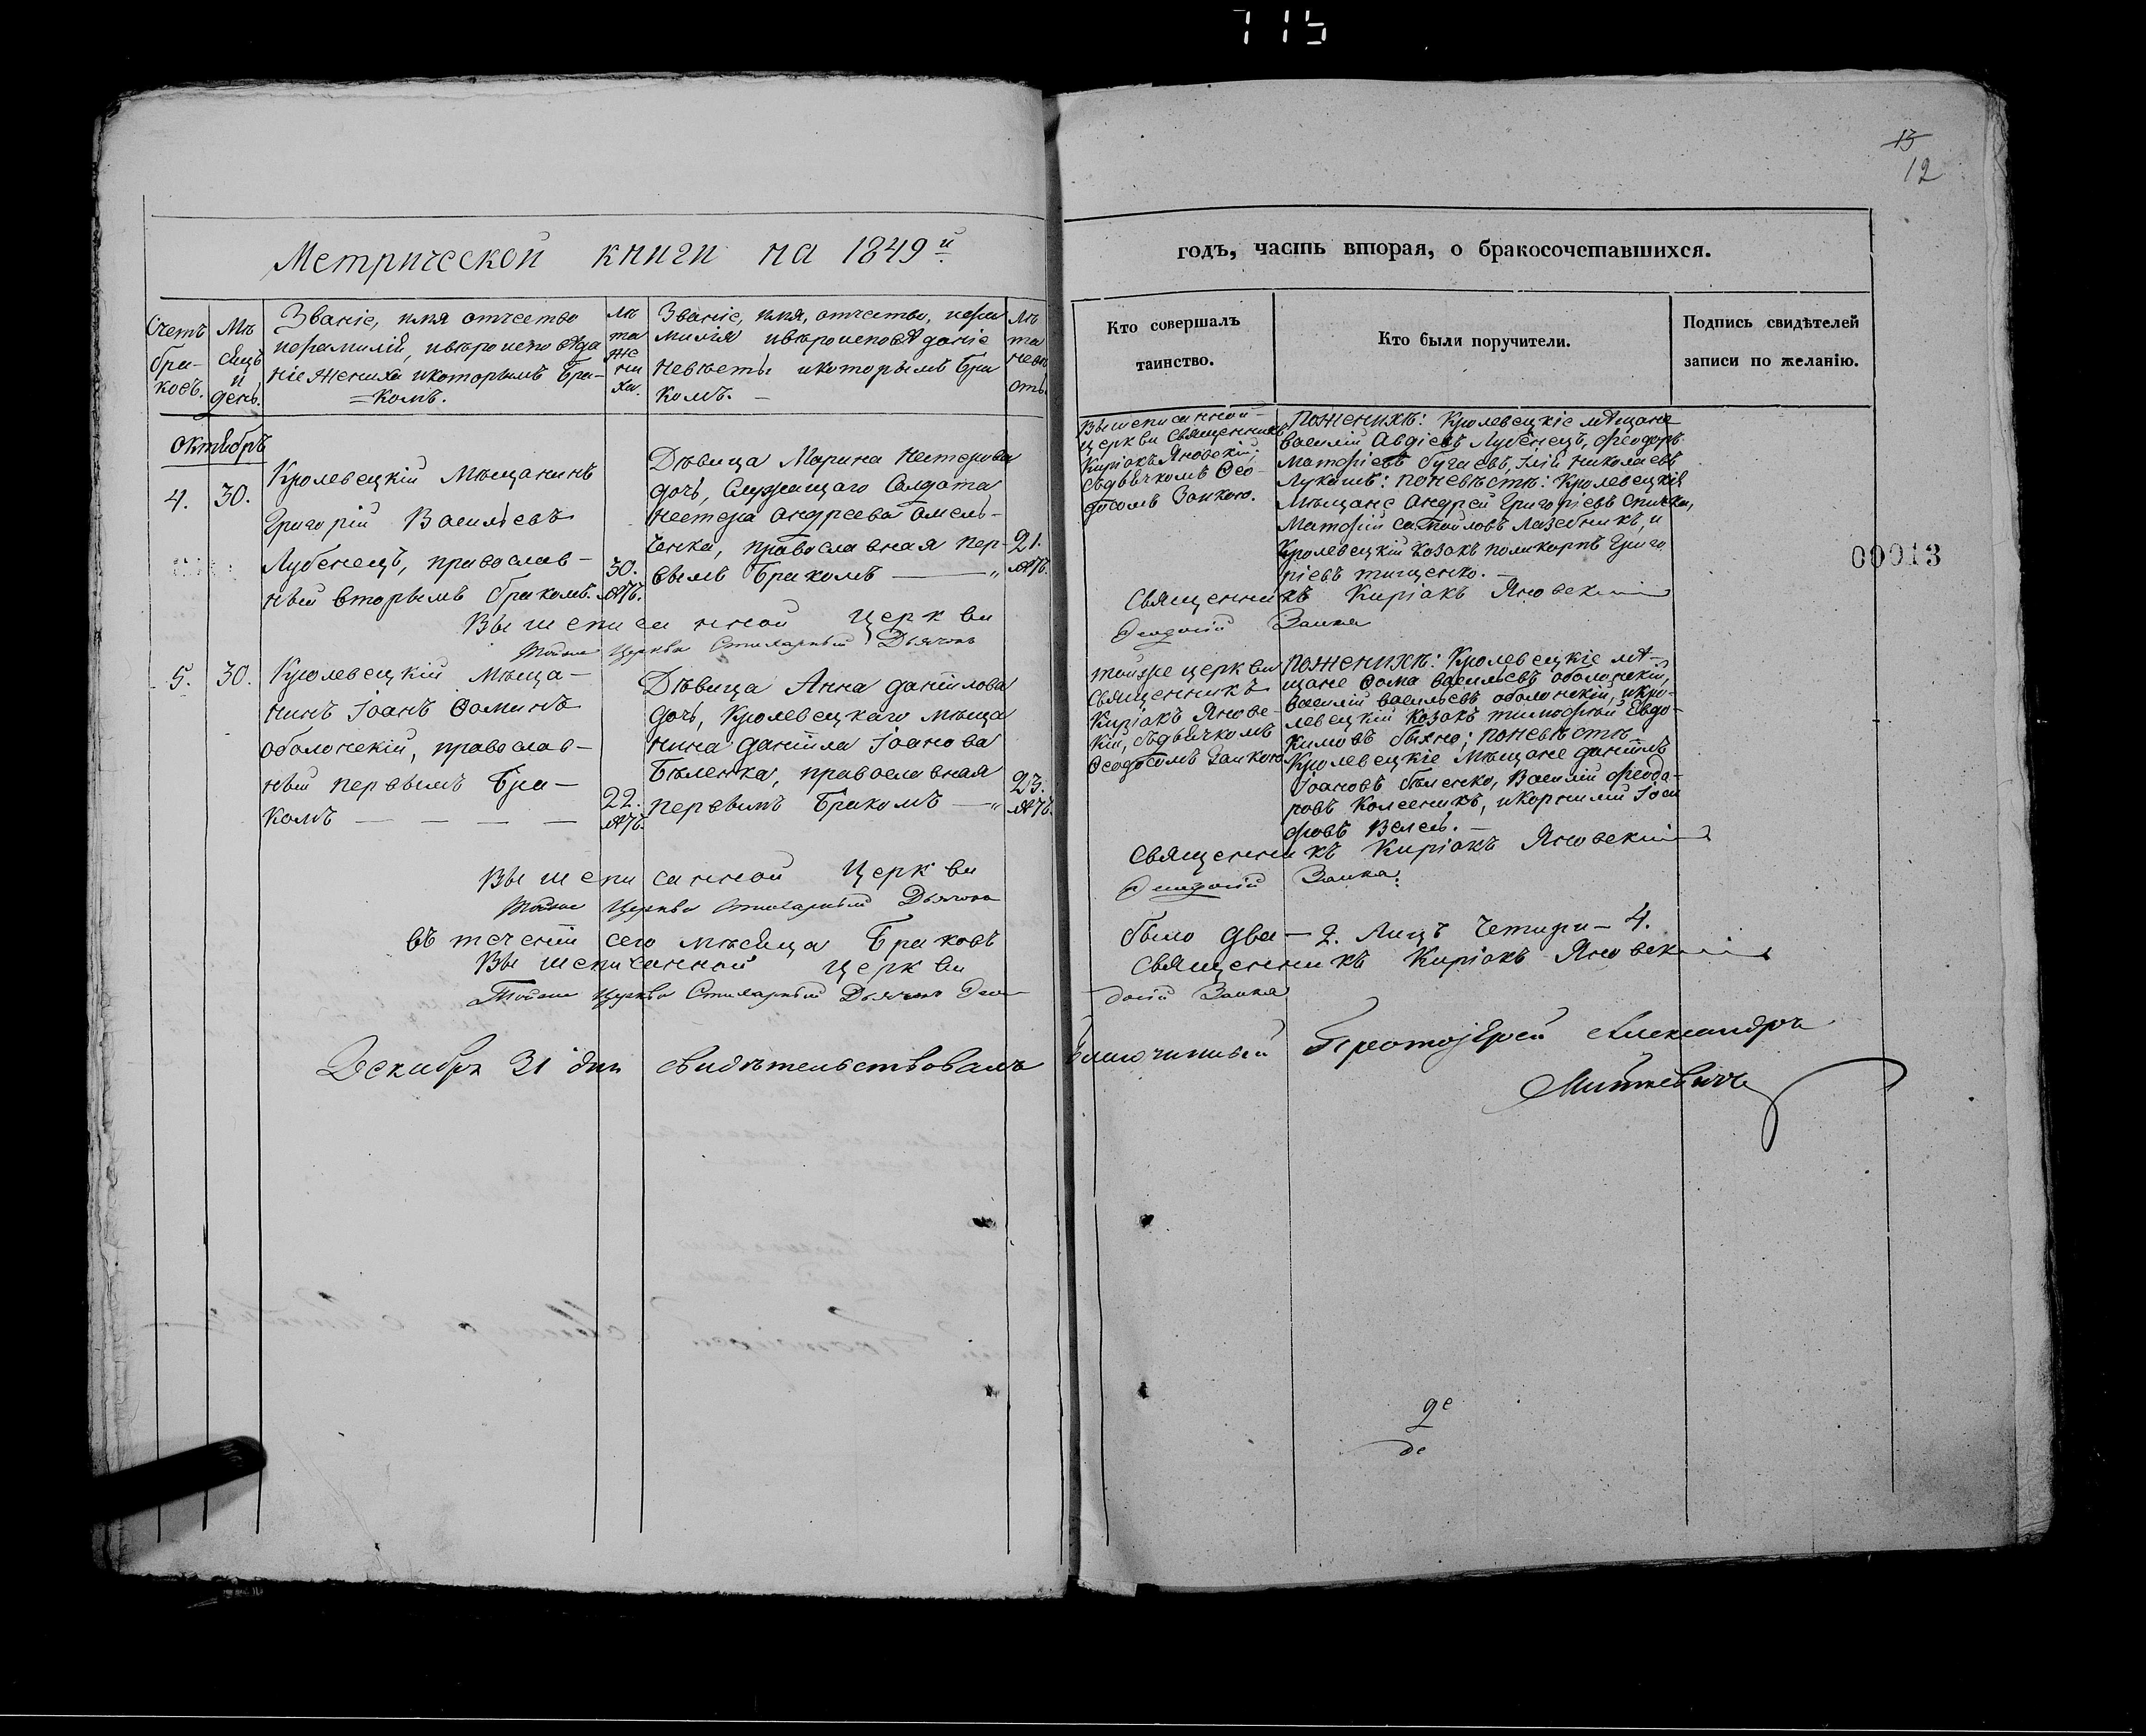 715
13
12
Метрической книги на 1849й
годъ, часть вторая, о бракосочетавшихся.
Счетъ
бра-
ковъ.
Мѣ
сяцъ
и
день.
Званіе, имя отчество
ифамилія, ивѣроисповѣда
ніе жениха икоторымъ бра-
=комъ.
лѣ
та
же
ни
ха.
Званіе, имя, отчество, ифа
милія ивѣроисповѣданіе
невѣсты икоторымъ бра
комъ. —
лѣ
та
невѣ
сты.
Кто совершалъ
таинство.
Кто были поручители.
Подпись свидѣтелей
записи по желанію.
октябрь
4. 30.
Кролевецкій Мѣщанинъ
Григорій Васильевъ
Лубенецъ, православ-
ный вторымъ бракомъ.
30.
лѣ.
Дѣвица Марина Нестерова
дочь, Служащаго Солдата
Нестера Андреева Омель-
ченка, православная пер-
вымъ бракомъ —
21.
лѣ.
Вышеписанной
церкви Священникъ
Киріакъ Яновскій,
съдьячкомъ Ѳео-
досомъ Заикою.
Поженихѣ: Кролевецкіе мѣщане
василій Авдіевъ Лубенецъ, феодоръ
Матфіевъ бугаевъ, Илій Николаевъ
Лукашъ: поневѣстѣ: Кролевецкій
Мѣщане Андрей Григоріевъ
Матфій самойловъ Лазебникъ, и
Кролевецкій Козакъ поликарпъ Григо
ріевъ тищенко. —
Вышеписанной церкви Священникъ Киріакъ Яновскій
Тойже Церкви Стихарный Дьячокъ Ѳеодосій Заика
5. 30.
Кролевецкій Мѣща-
нинъ Іоанъ Ѳоминъ
оболонскій, православ-
ный первымъ бра-
комъ — — — —
22.
лѣ.
Дѣвица Анна данiилова
дочь, Кролевецкаго мѣща
нина данiила Іоанова
Бѣленка, православная
первымъ Бракомъ —
23.
лѣ.
тойже церкви
Священникъ
Киріакъ Яновс-
кій, съдьячкомъ
Ѳеодосомъ Заикою
поженихѣ: Кролевецкіе мѣ-
щане Ѳома васильевъ оболонскій,
василій васильевъ оболонскій, икро-
левецкій Козакъ тимофей Евдо-
кимовъ; поневѣстѣ
Кролевецкіе Мѣщане данiилъ
Іоановъ бѣленко, Василій феодо-
ровъ Колесникъ, икорнилій Іоси
фовъ
Вышеписанной Церкви Священникъ Киріакъ Яновскій
Тойже Церкви Стихарный Дьячокъ Ѳеодосій Заика.
Въ теченіи сего мѣсяца Браковъ было два — 2. Лицъ Четири — 4.
Вышеписанной церкви Священникъ Киріакъ Яновскій
Тойже Церкви Стихарный Дьячокъ Ѳео- досій Заика
Декабря 31 дня свидѣтельствовалъ Благочинный Протоіерей Александръ
Миткевичъ
00013